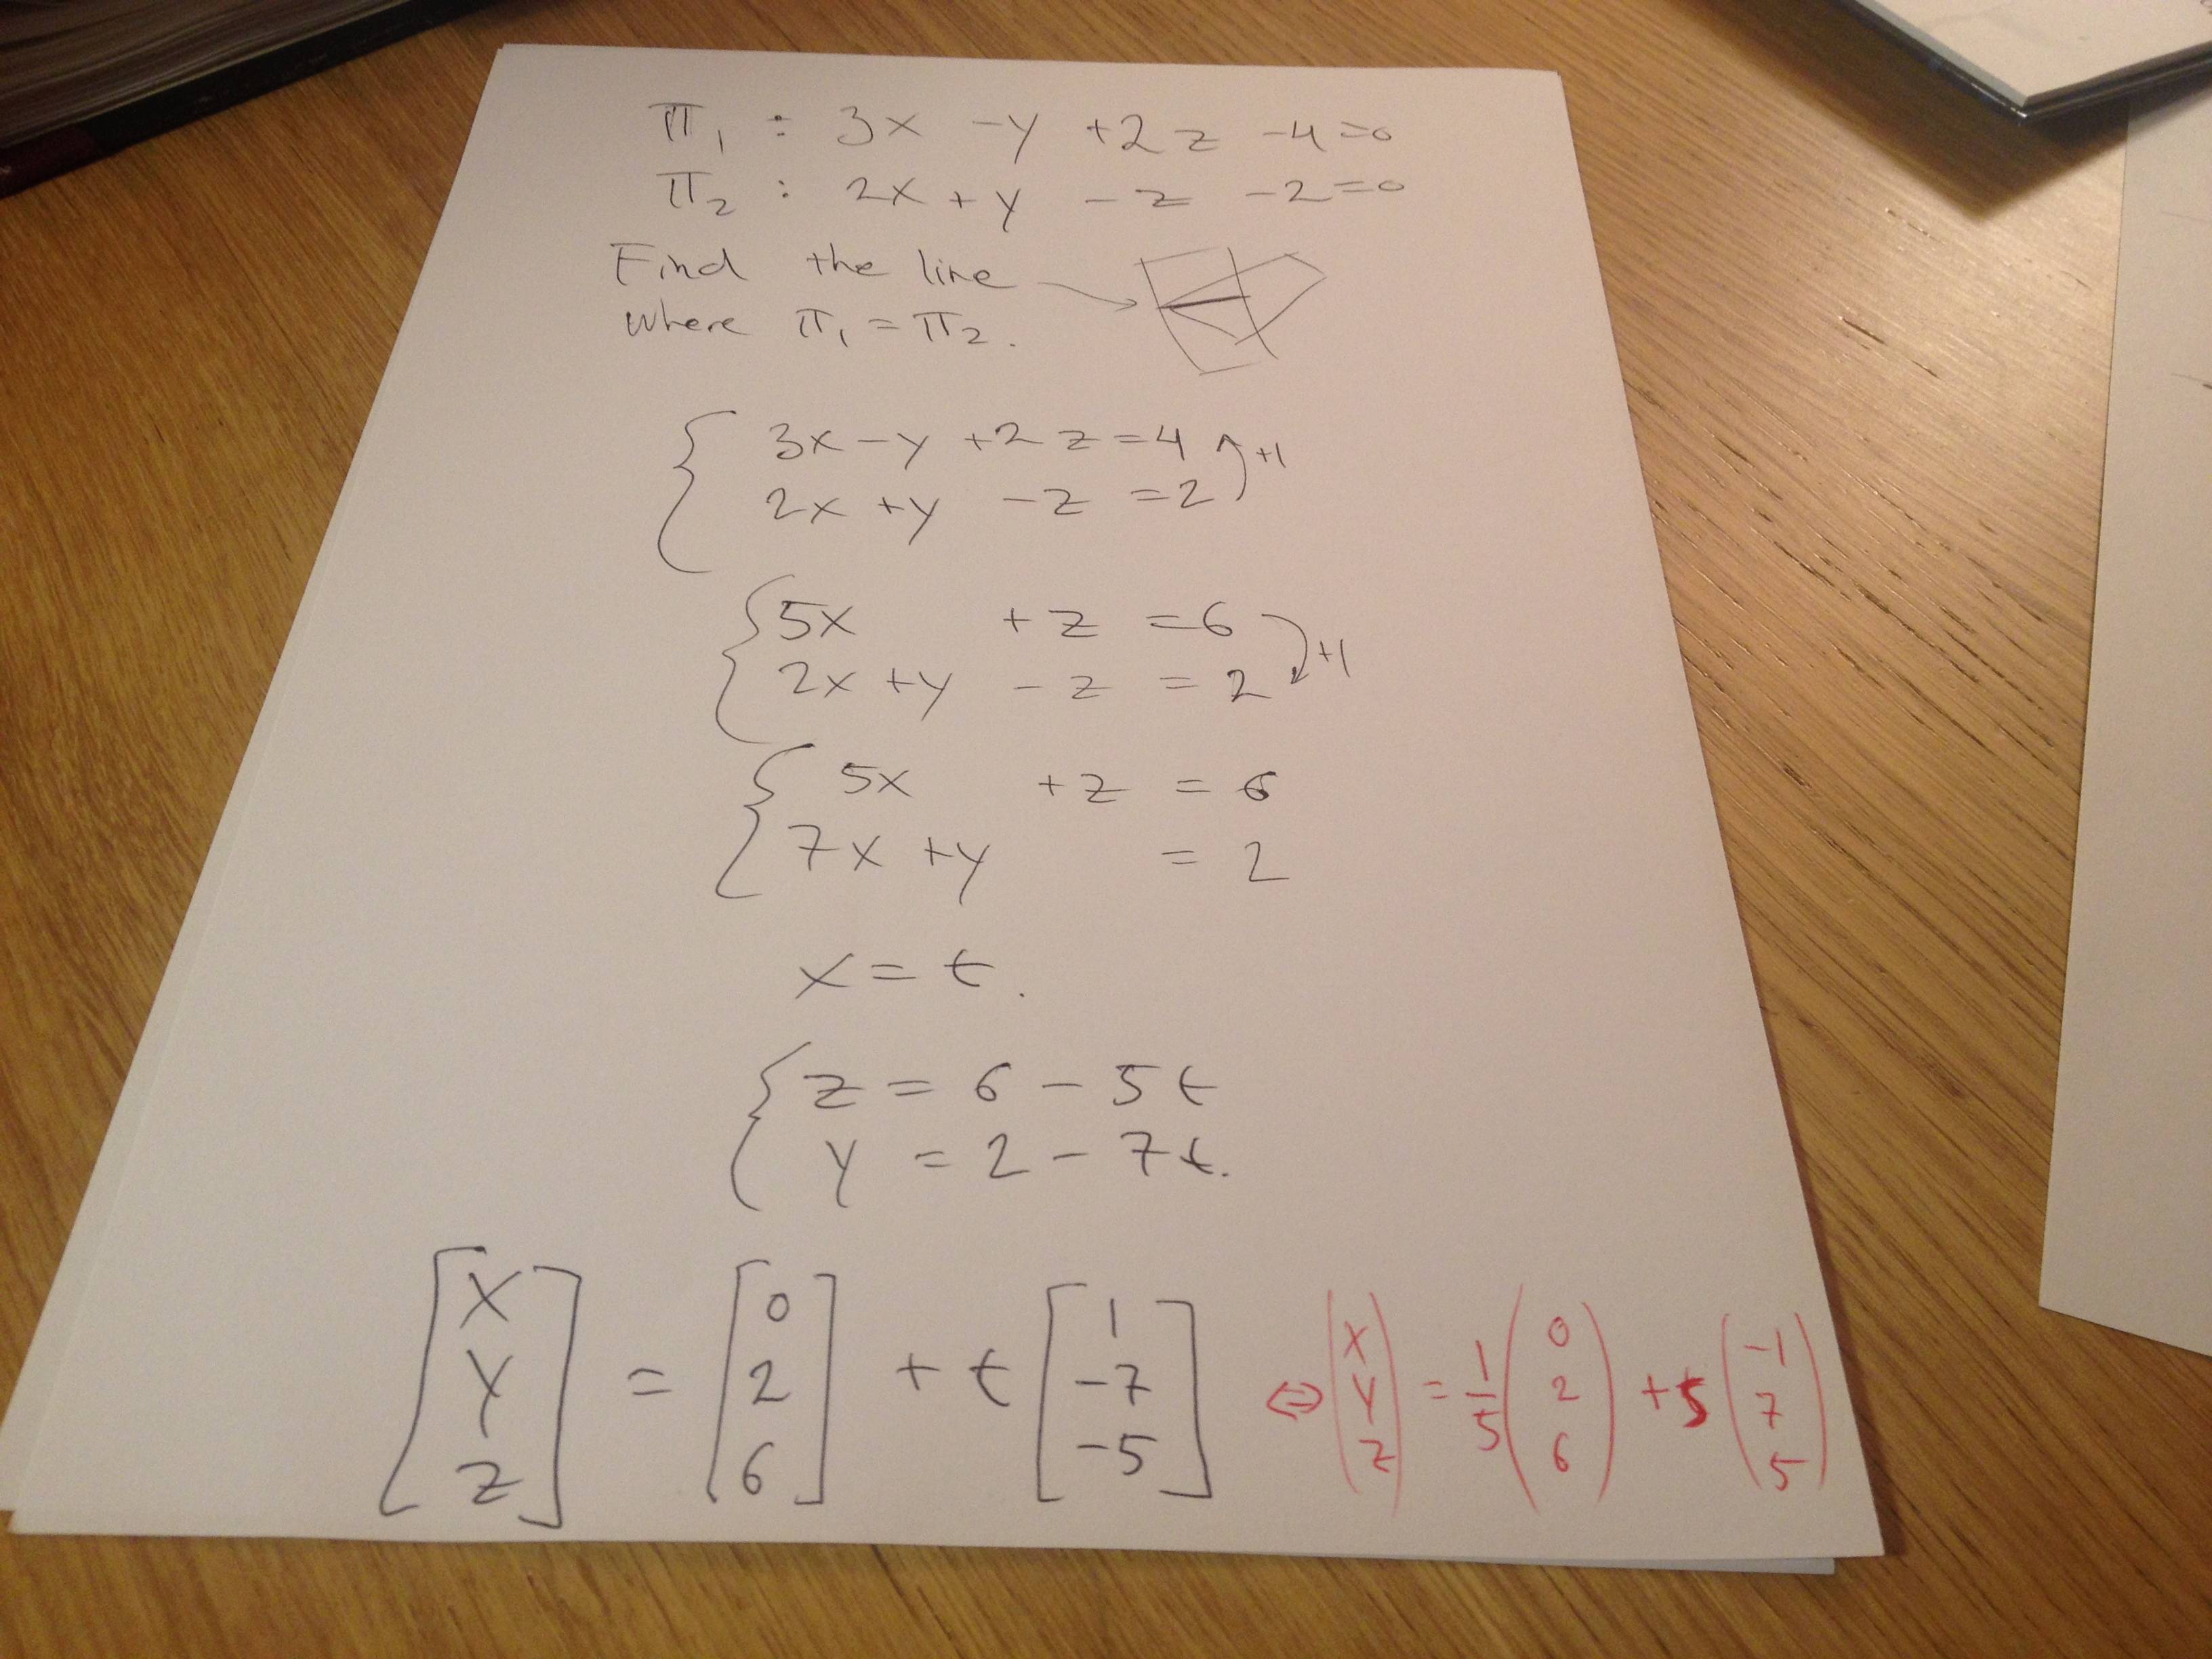 π₁ : 3x - y + 2z - 4 = 0
π₂ : 2x + y - z - 2 = 0
Find the line
where π₁ = π₂.
{ 3x - y + 2z = 4 +1
2x + y - z = 2
{ 5x + z = 6 +1
2x + y - z = 2
{ 5x + z = 6
7x + y = 2
x = t.
{ z = 6 - 5t
y = 2 - 7t.
[x y z] = [0 2 6] + t [1 -7 -5] ⇔ (x y z) = 1/5 (0 2 6) + s (-1 7 5)